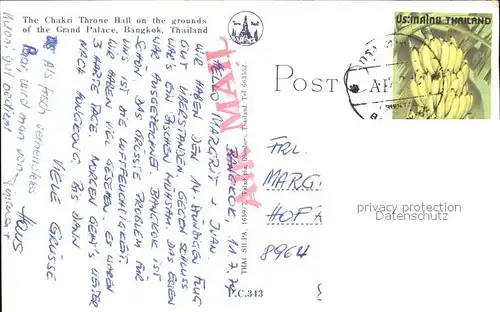 The Chakri Throne Hall on the grounds
of the Grand Palace, Bangkok, Thailand
ประเทศไทย THAILAND
POST CAR
AIR MAIL
BANGKOK, 11.7.
HELLO MARGRIT + JUAN,
WIR HABEN DEN 14 STÜNDIGEN FLUG
GUT ÜBERSTANDEN. GEGEN SCHLUSS
WAR'S EIN BISCHEN MÜHSAM. DAS ESSEN
WAR AUSGEZEICHNET. BANGKOK IST
SCHON DAS GRÖSSTE PROBLEM FÜR
UNS IST DIE LUFTFEUCHTIGKEIT.
WIR HABEN VIEL GESEHEN. ES WAREN
3 HARTE TAGE. MORGEN GEHT'S WEITER
NACH HONGKONG. BIS DANN
VIELE GRÜSSE
HANS
Als frisch
Paar, wird man von
gut bedient
THAI SILPA,
Bangkok, Thailand. Tel
P.C.343
FRL.
MARG
HOF
8964
privacy protection
Datenschutz